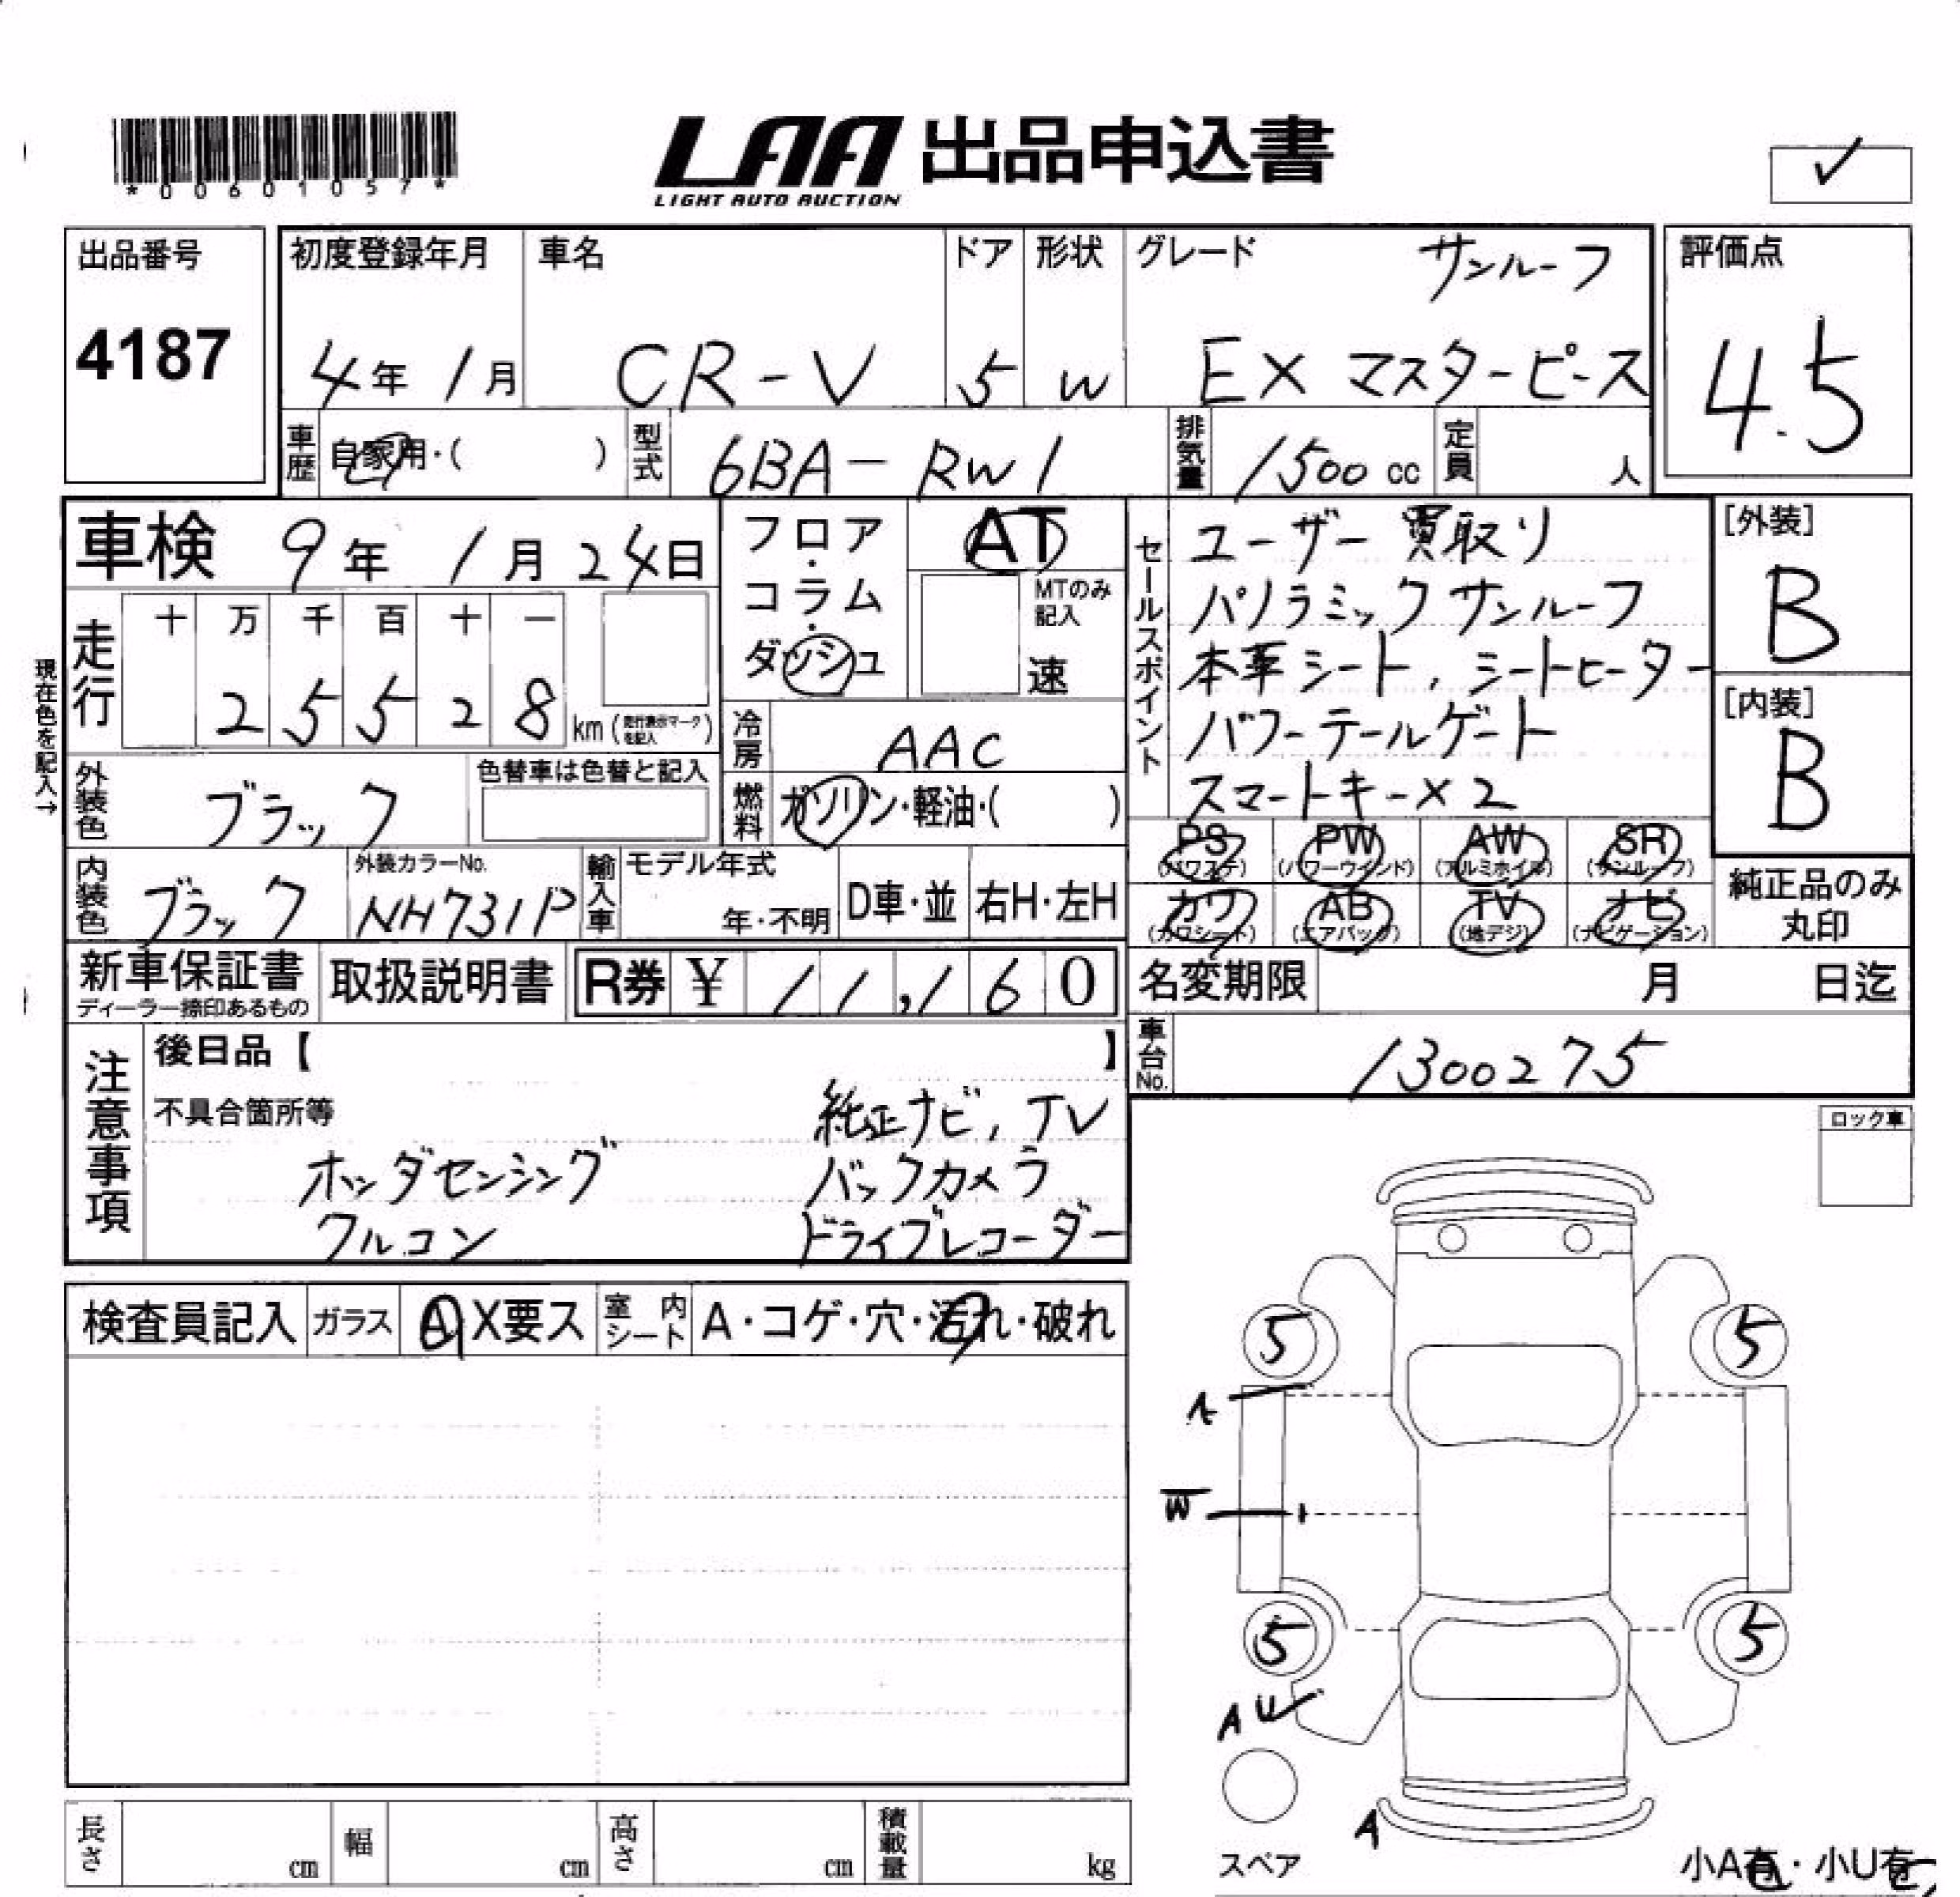 *00601057*
LAA 出品申込書
LIGHT AUTO AUCTION
✓
出品番号
4187
初度登録年月
4年 1月
車名
CR-V
ドア
5
形状
W
グレード
サンルーフ
EX マスターピース
評価点
4.5
車歴
自家用・( )
型式
6BA-RW1
排気量
1500 cc
定員
人
車検 9年 1月 24日
走行
十 万 千 百 十 一
2 5 5 2 8 km (走行表示マークを記入)
現在色を記入→
外装色
ブラック
色替車は色替と記入
内装色
ブラック
外装カラーNo.
NH731P
フロア・コラム・ダッシュ
AT
MTのみ記入
速
冷房
AAC
燃料
ガソリン・軽油・( )
輸入車
モデル年式
年・不明
D車・並
右H・左H
セールスポイント
ユーザー買取り
パノラミックサンルーフ
本革シート, シートヒーター
パワーテールゲート
スマートキー×2
[外装]
B
[内装]
B
PS (パワステ)
PW (パワーウインド)
AW (アルミホイル)
SR (サンルーフ)
カワ (カワシート)
AB (エアバッグ)
TV (地デジ)
ナビ (ナビゲーション)
純正品のみ丸印
新車保証書
ディーラー捺印あるもの
取扱説明書
R券 ¥ 11,160
名変期限
月 日迄
車台No.
1300275
注意事項
後日品【 】
不具合箇所等
純正ナビ, TV
ホンダセンシング バックカメラ
クルコン ドライブレコーダー
ロック車
検査員記入
ガラス
A X要ス
室内シート
A・コゲ・穴・汚れ・破れ
5 5
A
W
5 5
A U
A
スペア
小A有・小U有
長さ
cm
幅
cm
高さ
cm
積載量
kg